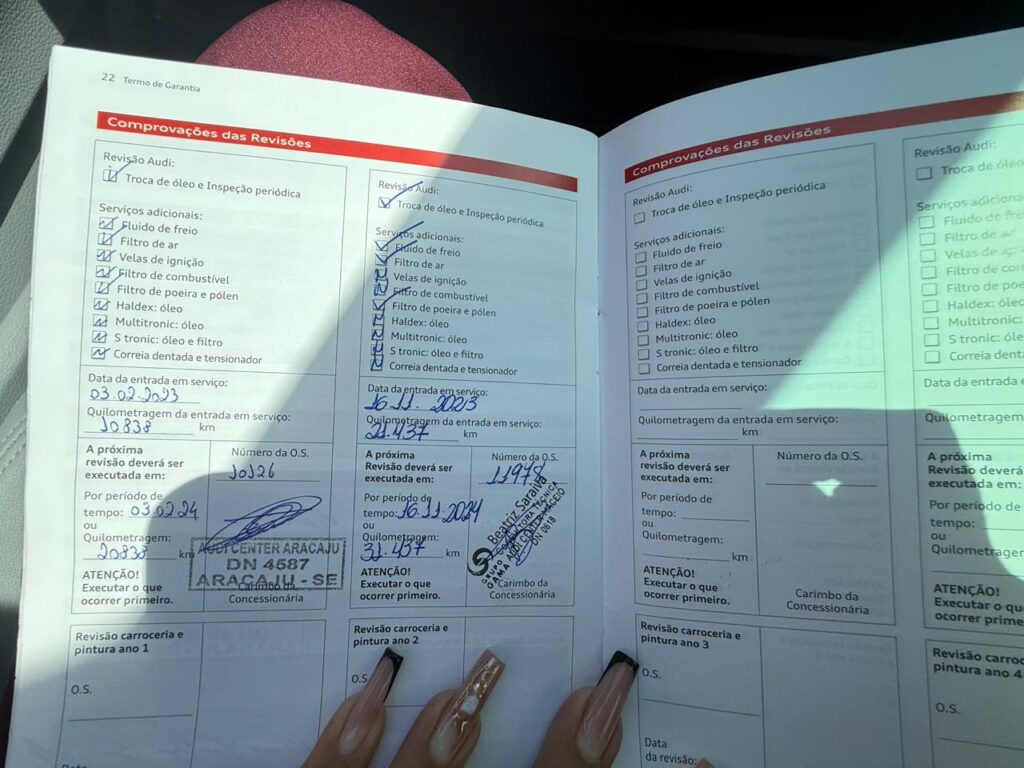 22 Termo de Garantia
Comprovações das Revisões
Revisão Audi:
Troca de óleo e Inspeção periódica
Serviços adicionais:
Fluido de freio
Filtro de ar
Velas de ignição
Filtro de combustível
Filtro de poeira e pólen
Haldex: óleo
Multitronic: óleo
S tronic: óleo e filtro
Correia dentada e tensionador
Data da entrada em serviço:
03.02.2023
Quilometragem da entrada em serviço:
10838 km
A próxima
revisão deverá ser
executada em:
Por período de
tempo: 03.02.24
ou
Quilometragem:
20838 km
ATENÇÃO!
Executar o que
ocorrer primeiro.
Número da O.S.
10126
AUDI CENTER ARACAJU
DN 4587
ARACAJU - SE
Carimbo da
Concessionária
Revisão carroceria e
pintura ano 1
O.S.
Revisão Audi:
Troca de óleo e Inspeção periódica
Serviços adicionais:
Fluido de freio
Filtro de ar
Velas de ignição
Filtro de combustível
Filtro de poeira e pólen
Haldex: óleo
Multitronic: óleo
S tronic: óleo e filtro
Correia dentada e tensionador
Data da entrada em serviço:
16.11.2023
Quilometragem da entrada em serviço:
21.437 km
A próxima
Revisão deverá ser
executada em:
Por período de
tempo: 16.11.2024
ou
Quilometragem:
31.437 km
ATENÇÃO!
Executar o que
ocorrer primeiro.
Número da O.S.
11978
Beatriz Saraiva
TÉCNICA
GRUPO
GAMA AUDI CENTER MACEIÓ
DN 0618
Carimbo da
Concessionária
Revisão carroceria e
pintura ano 2
O.S.
Comprovações das Revisões
Revisão Audi:
Troca de óleo e Inspeção periódica
Serviços adicionais:
Fluido de freio
Filtro de ar
Velas de ignição
Filtro de combustível
Filtro de poeira e pólen
Haldex: óleo
Multitronic: óleo
S tronic: óleo e filtro
Correia dentada e tensionador
Data da entrada em serviço:
Quilometragem da entrada em serviço:
km
A próxima
revisão deverá ser
executada em:
Por período de
tempo:
ou
Quilometragem:
km
ATENÇÃO!
Executar o que
ocorrer primeiro.
Número da O.S.
Carimbo da
Concessionária
Revisão carroceria e
pintura ano 3
O.S.
Data
da revisão:
Revisão Audi:
Troca de óleo
Serviços adicionais:
Fluido de
Filtro de ar
Velas de
Filtro de
Filtro de
Haldex: óleo
Multitronic:
S tronic: óleo
Correia dentada
Data da entrada em
Quilometragem
A próxima
Revisão deverá
executada em:
Por período de
tempo:
ou
Quilometragem:
ATENÇÃO!
Executar o que
ocorrer primeiro.
Revisão
pintura ano 4
O.S.